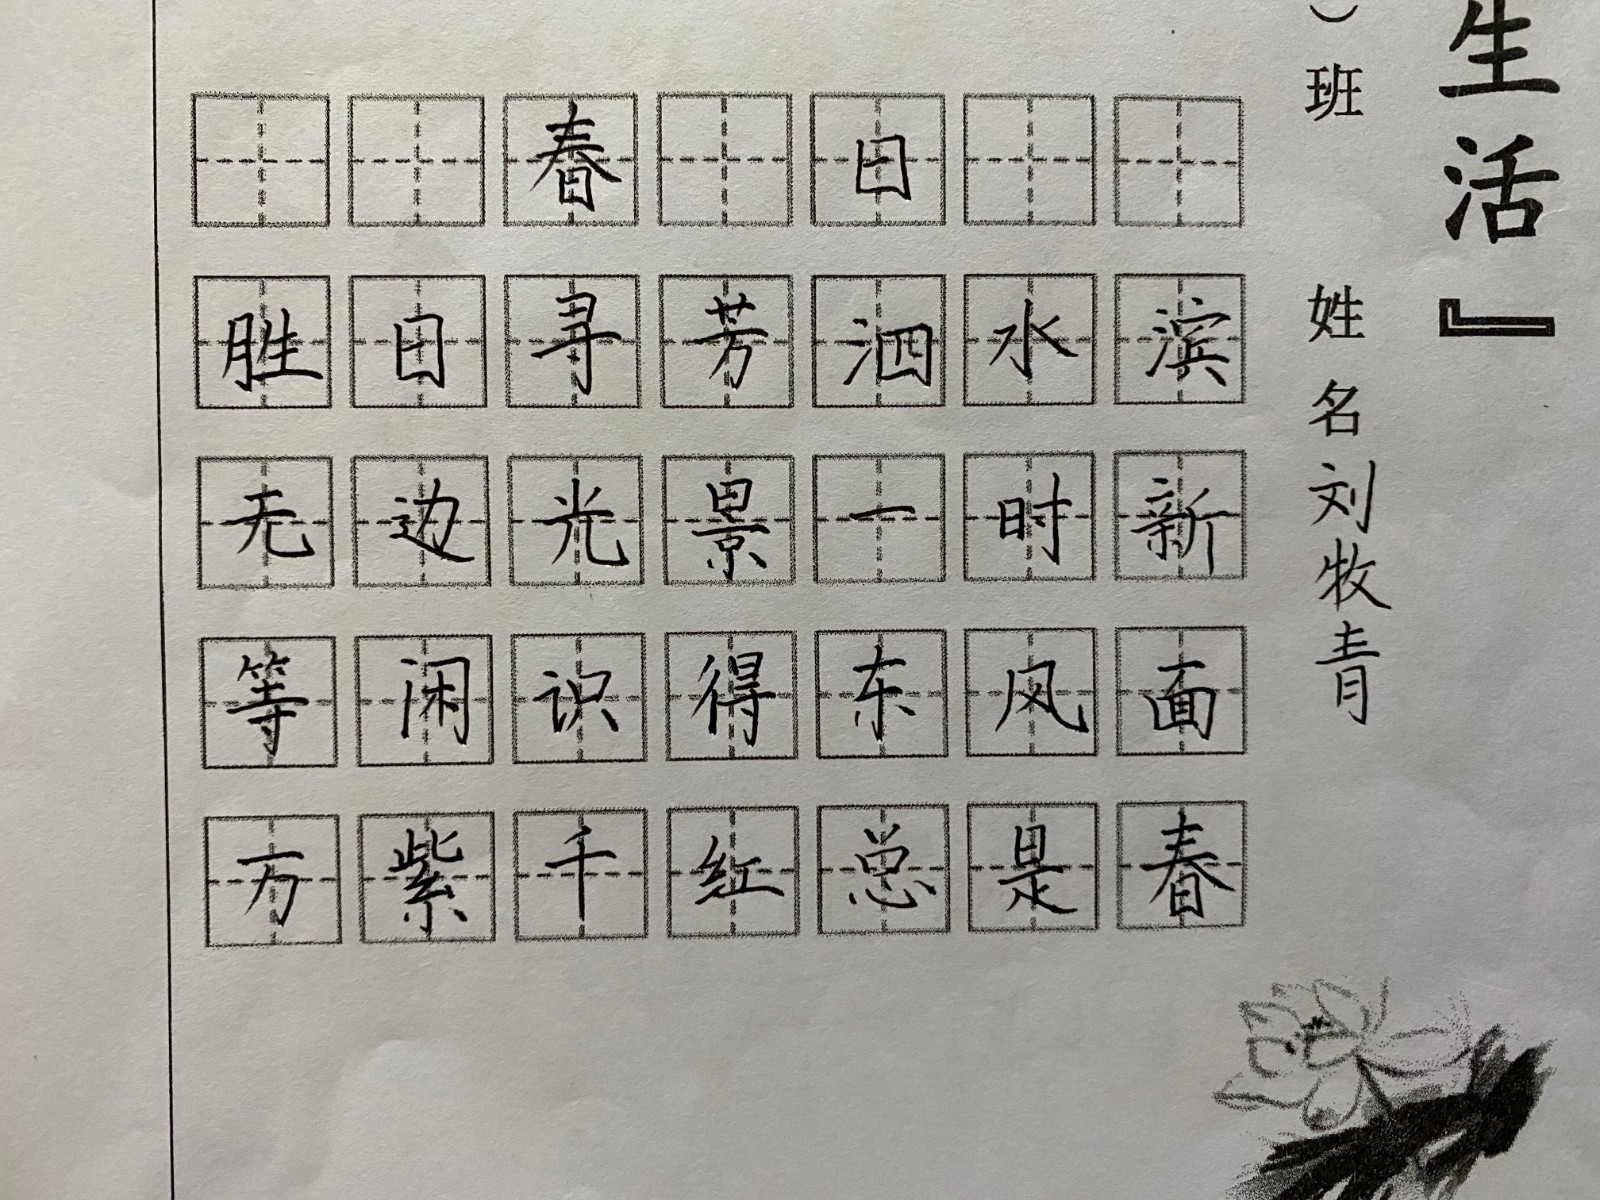 生活』
）班 姓名刘牧青
春日
胜日寻芳泗水滨
无边光景一时新
等闲识得东风面
万紫千红总是春